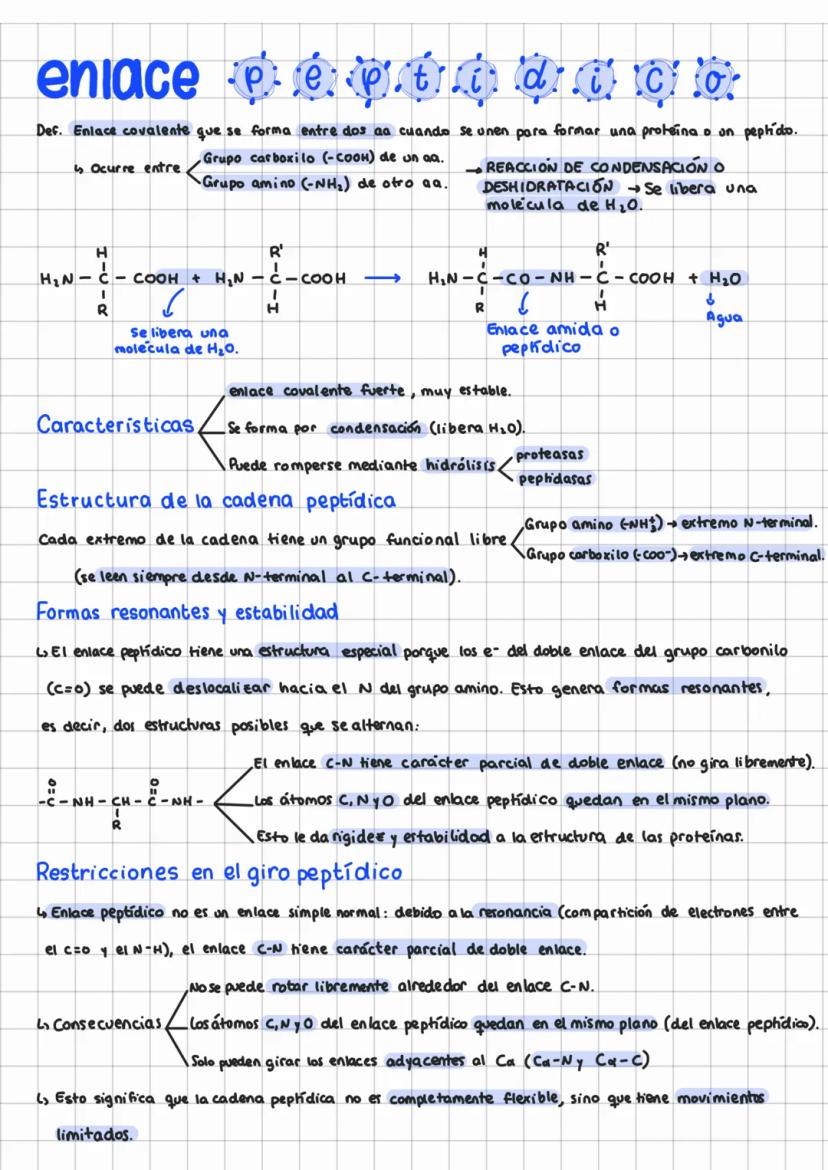 enlace peptídico
Def. Enlace covalente que se forma entre dos aa cuando se unen para formar una proteína o un peptído.
↳ Ocurre entre
Grupo carboxilo (-COOH) de un aa.
Grupo amino (-NH₂) de otro aa.
→ REACCIÓN DE CONDENSACIÓN O
DESHIDRATACIÓN → Se libera una
molécula de H₂O.
H R' H R'
H₂N - C - COOH + H₂N - C - COOH → H₂N - C - CO - NH - C - COOH + H₂O
R H R H
Se libera una
molécula de H₂O.
Enlace amida o
peptídico
Agua
Características
enlace covalente fuerte, muy estable.
Se forma por condensación (libera H₂O).
Puede romperse mediante hidrólisis
proteasas
peptidasas
Estructura de la cadena peptídica
Cada extremo de la cadena tiene un grupo funcional libre
Grupo amino (-NH₃⁺) → extremo N-terminal.
Grupo carboxilo (-COO⁻) → extremo C-terminal.
(se leen siempre desde N-terminal al C-terminal).
Formas resonantes y estabilidad
↳ El enlace peptídico tiene una estructura especial porque los e⁻ del doble enlace del grupo carbonilo
(C=O) se puede deslocalizar hacia el N del grupo amino. Esto genera formas resonantes,
es decir, dos estructuras posibles que se alternan:
O O
-C - NH - CH - C - NH -
R
El enlace C-N tiene carácter parcial de doble enlace (no gira libremente).
Los átomos C, N y O del enlace peptídico quedan en el mismo plano.
Esto le da rigidez y estabilidad a la estructura de las proteínas.
Restricciones en el giro peptídico
↳ Enlace peptídico no es un enlace simple normal: debido a la resonancia (compartición de electrones entre
el C=O y el N-H), el enlace C-N tiene carácter parcial de doble enlace.
↳ Consecuencias
No se puede rotar libremente alrededor del enlace C-N.
Los átomos C, N y O del enlace peptídico quedan en el mismo plano (del enlace peptídico).
Solo pueden girar los enlaces adyacentes al Cα (Cα-N y Cα-C)
↳ Esto significa que la cadena peptídica no es completamente flexible, sino que tiene movimientos
limitados.